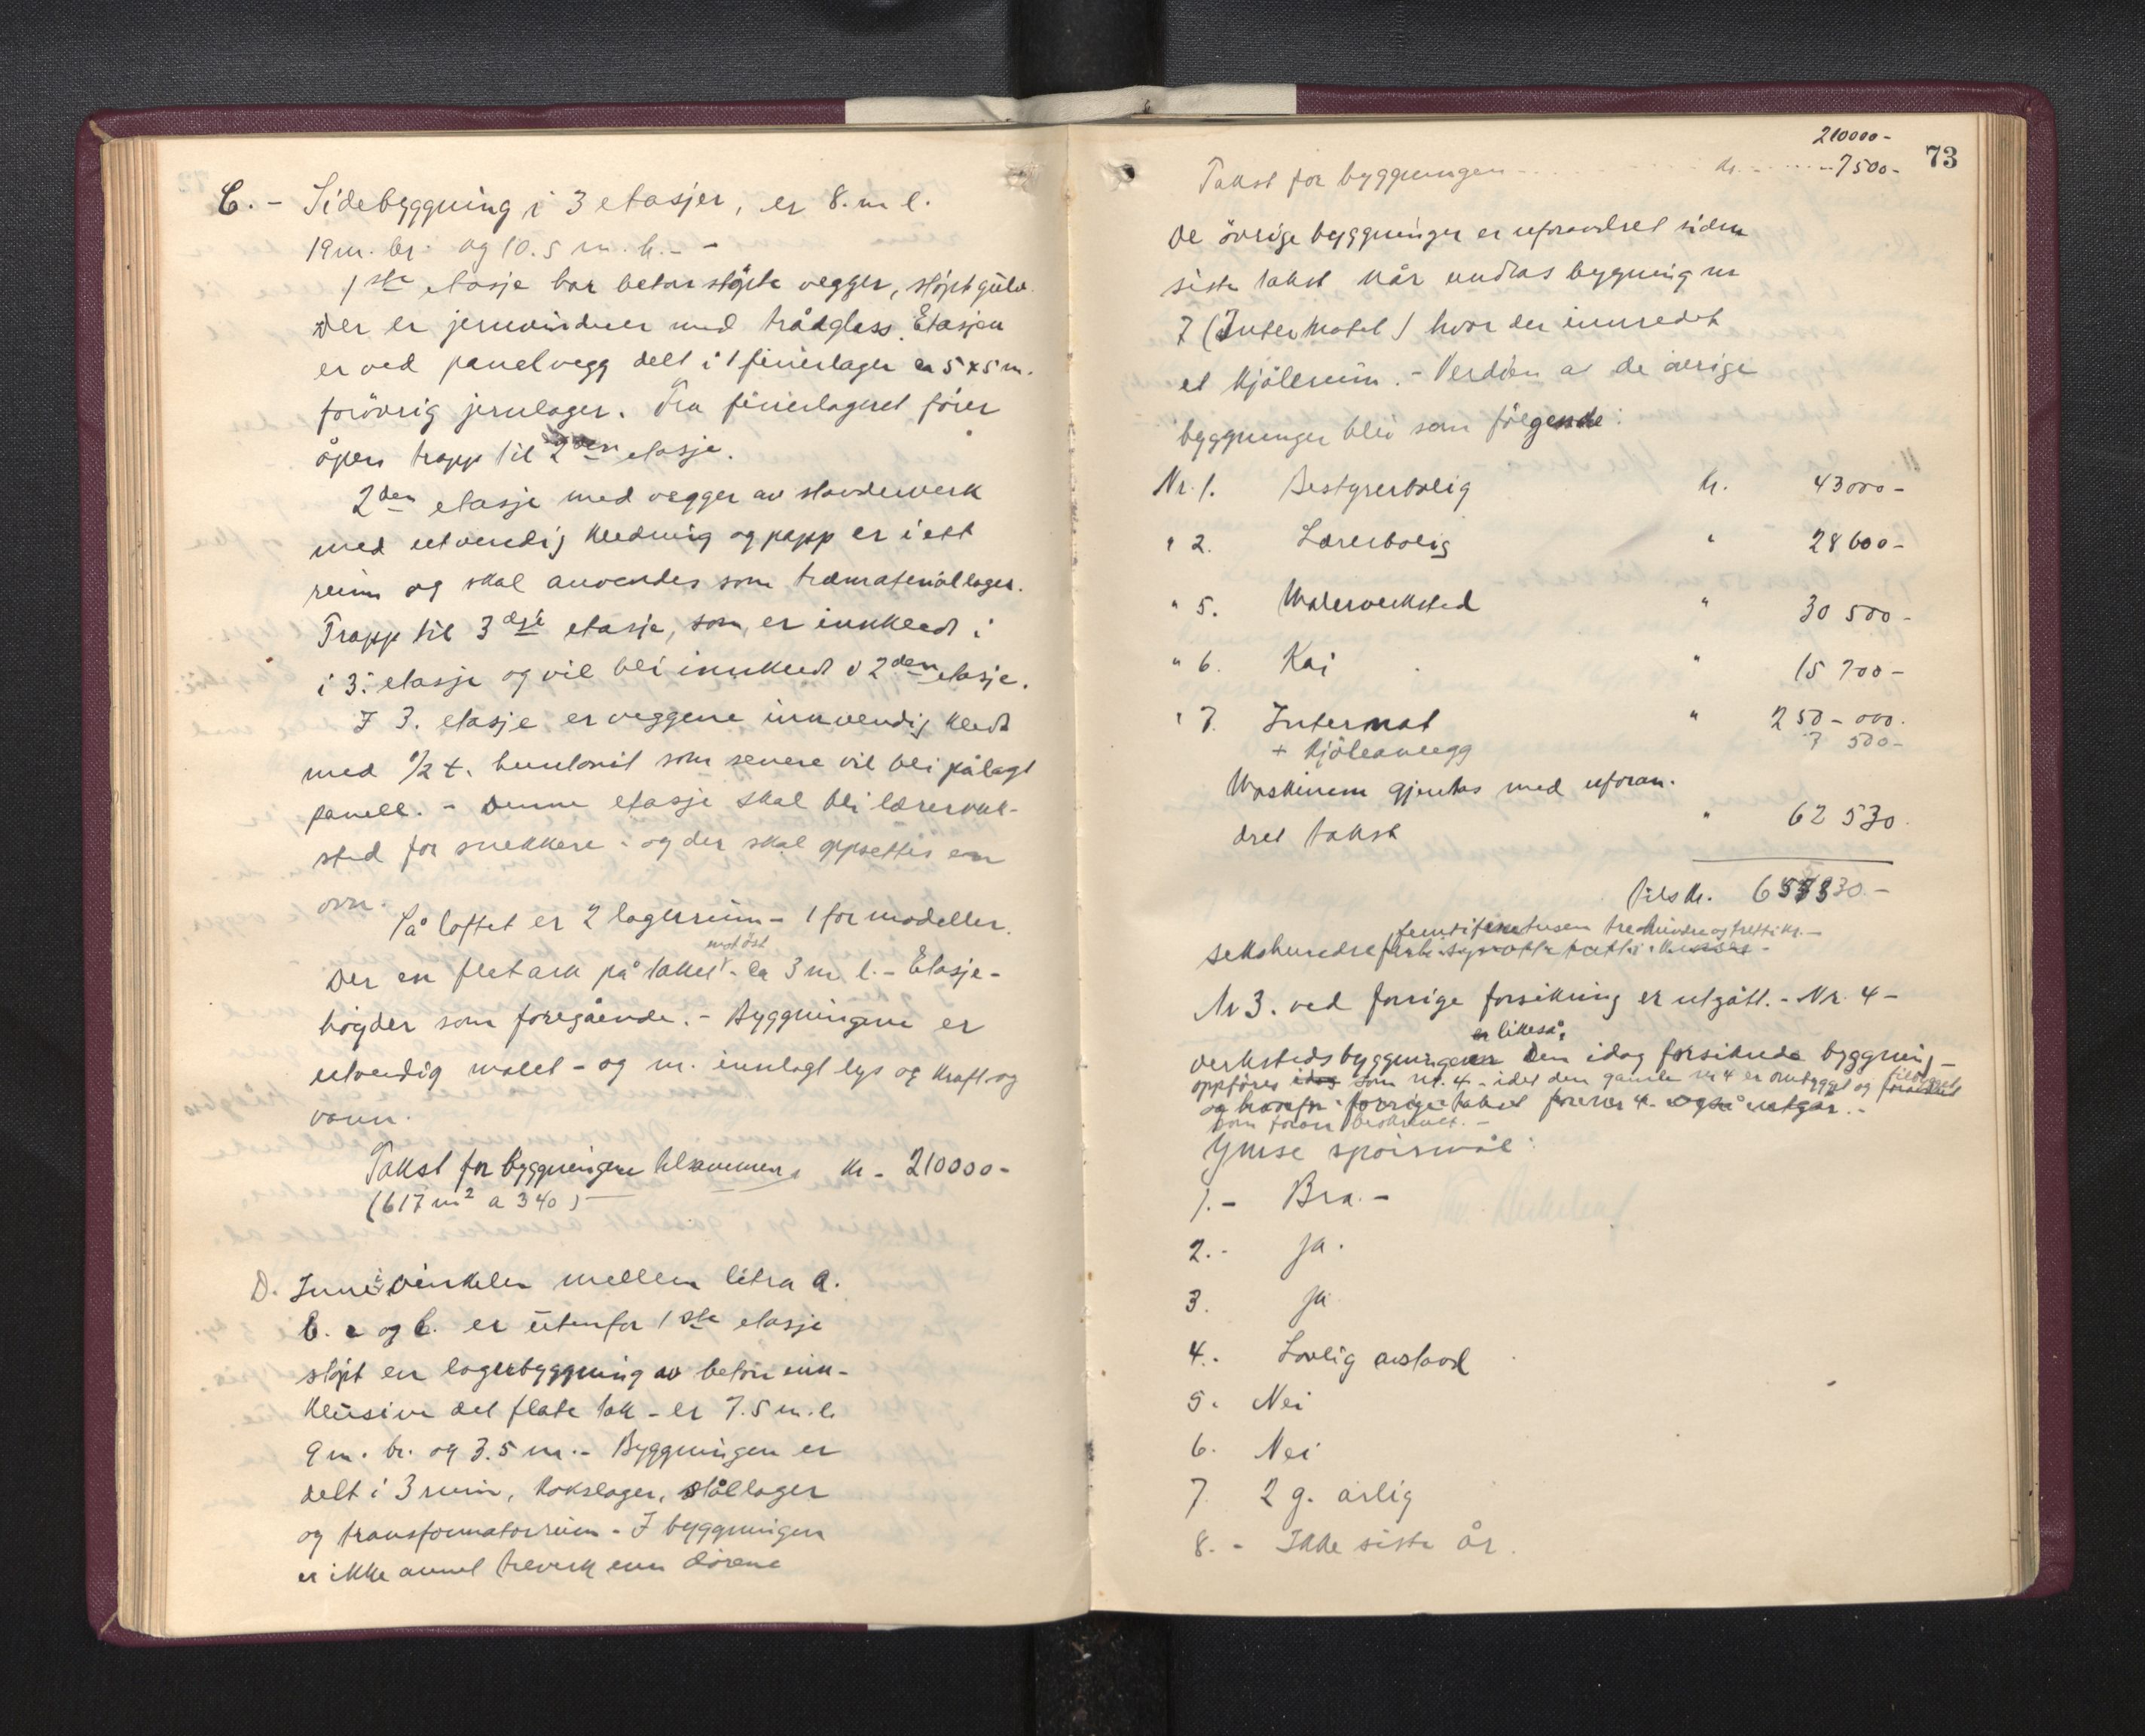 C. - Sidebyggning i 3 etasjer, er 8. m l.
19 m. br. og 10.5 m. h. -
1ste etasje har betonstöpte vegger, stöpt gulv.
Der er jernvinduer med trådglass. Etasjen
er ved panelvegg delt i 1 finerlager ca 5x5 m.
forövrig jernlager. Fra finerlageret förer
åpen trapp til 2den etasje.
2den etasje med vegger av stenderverk
med utvendig kledning og papp er i ett
rum og skal anvendes som træmateriallager.
Trapp til 3dje etasje, som er innkledt i
i 3. etasje og vil bli innkledt i 2den etasje.
I 3. etasje er veggene innvendig kledt
med 1/2 t. huntonit som senere vil bli pålagt
panell. - Denne etasje skal bli lærerverk-
sted for snekkere - og der skal oppsettes en
ovn.
På loftet er 2 lagerrum - 1 for modeller.
mot öst
Der en flet ark på taket - ca 3 m l. - Etasje-
högder som foregående. - Byggningene er
utvendig malet - og m. innlagt lys og kraft og
vann.
Takst for byggningene tilsammen kr - 210000 -
(617 m2 a 340)
D. Inne i vinkelen mellem litra A.
B. og C. er utenfor 1ste etasje
stöpt en lagerbyggning av beton inn-
klusive det flate tak - er 7.5 m. l.
9 m. br. og 3.5 m. - Byggningen er
delt i 3 rum, kokslager, stållager
og transformatorrum - I byggningen
er ikke annet treverk enn dörene
73
210000 -
Takst for byggningen kr. 7500 -
De övrige byggninger er uforandret siden
siste takst når undtas bygning nr
7 (Internatet) hvor der innredet
et kjölerum. - Verdien av de övrige
byggninger blei som fölgende:
Nr. 1. Bestyrerbolig kr. 43000 -
" 2. Lærerbolig " 28600 -
" 5. Malerverksted " 30 500 -
" 6. Kai " 15 700 -
" 7. Internat " 250 - 000.
+ Kjöleanlegg 7 500 -
Maskinene gjentas med uforan-
dret takst " 62 530
Tils kr. 655330 -
femtifemtusen trehundreogtretti kr. -
sekshundre
Nr 3. ved forrige forsikring er utgått. - Nr. 4 -
er likeså.
verkstedsbyggningen Den idag forsikrede byggning -
oppföres idag som nr. 4 - idet den gamle nr 4 er ombygget og tilbygget
og hvorfor forrige takst for nr 4. også utgår. -
som foran beskrevet. -
Ymse spörsmål:
1. - Bra. -
2. - Ja.
3. Ja
4. - Lovlig avstand
5. Nei
6. Nei
7. 2 g. årlig
8. - Ikke siste år.